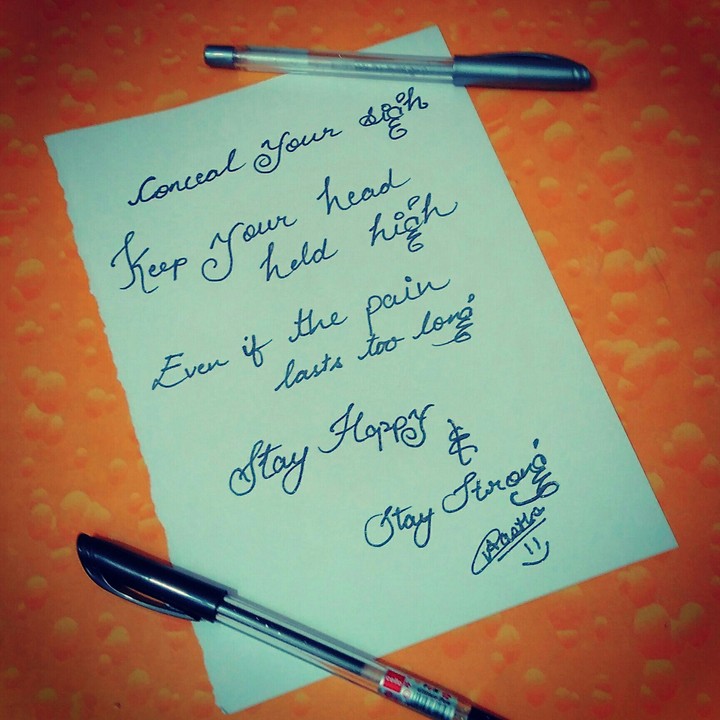 Conceal Your sigh
Keep Your head
held high
Even if the pain
lasts too long
Stay Happy &
Stay Strong
cello